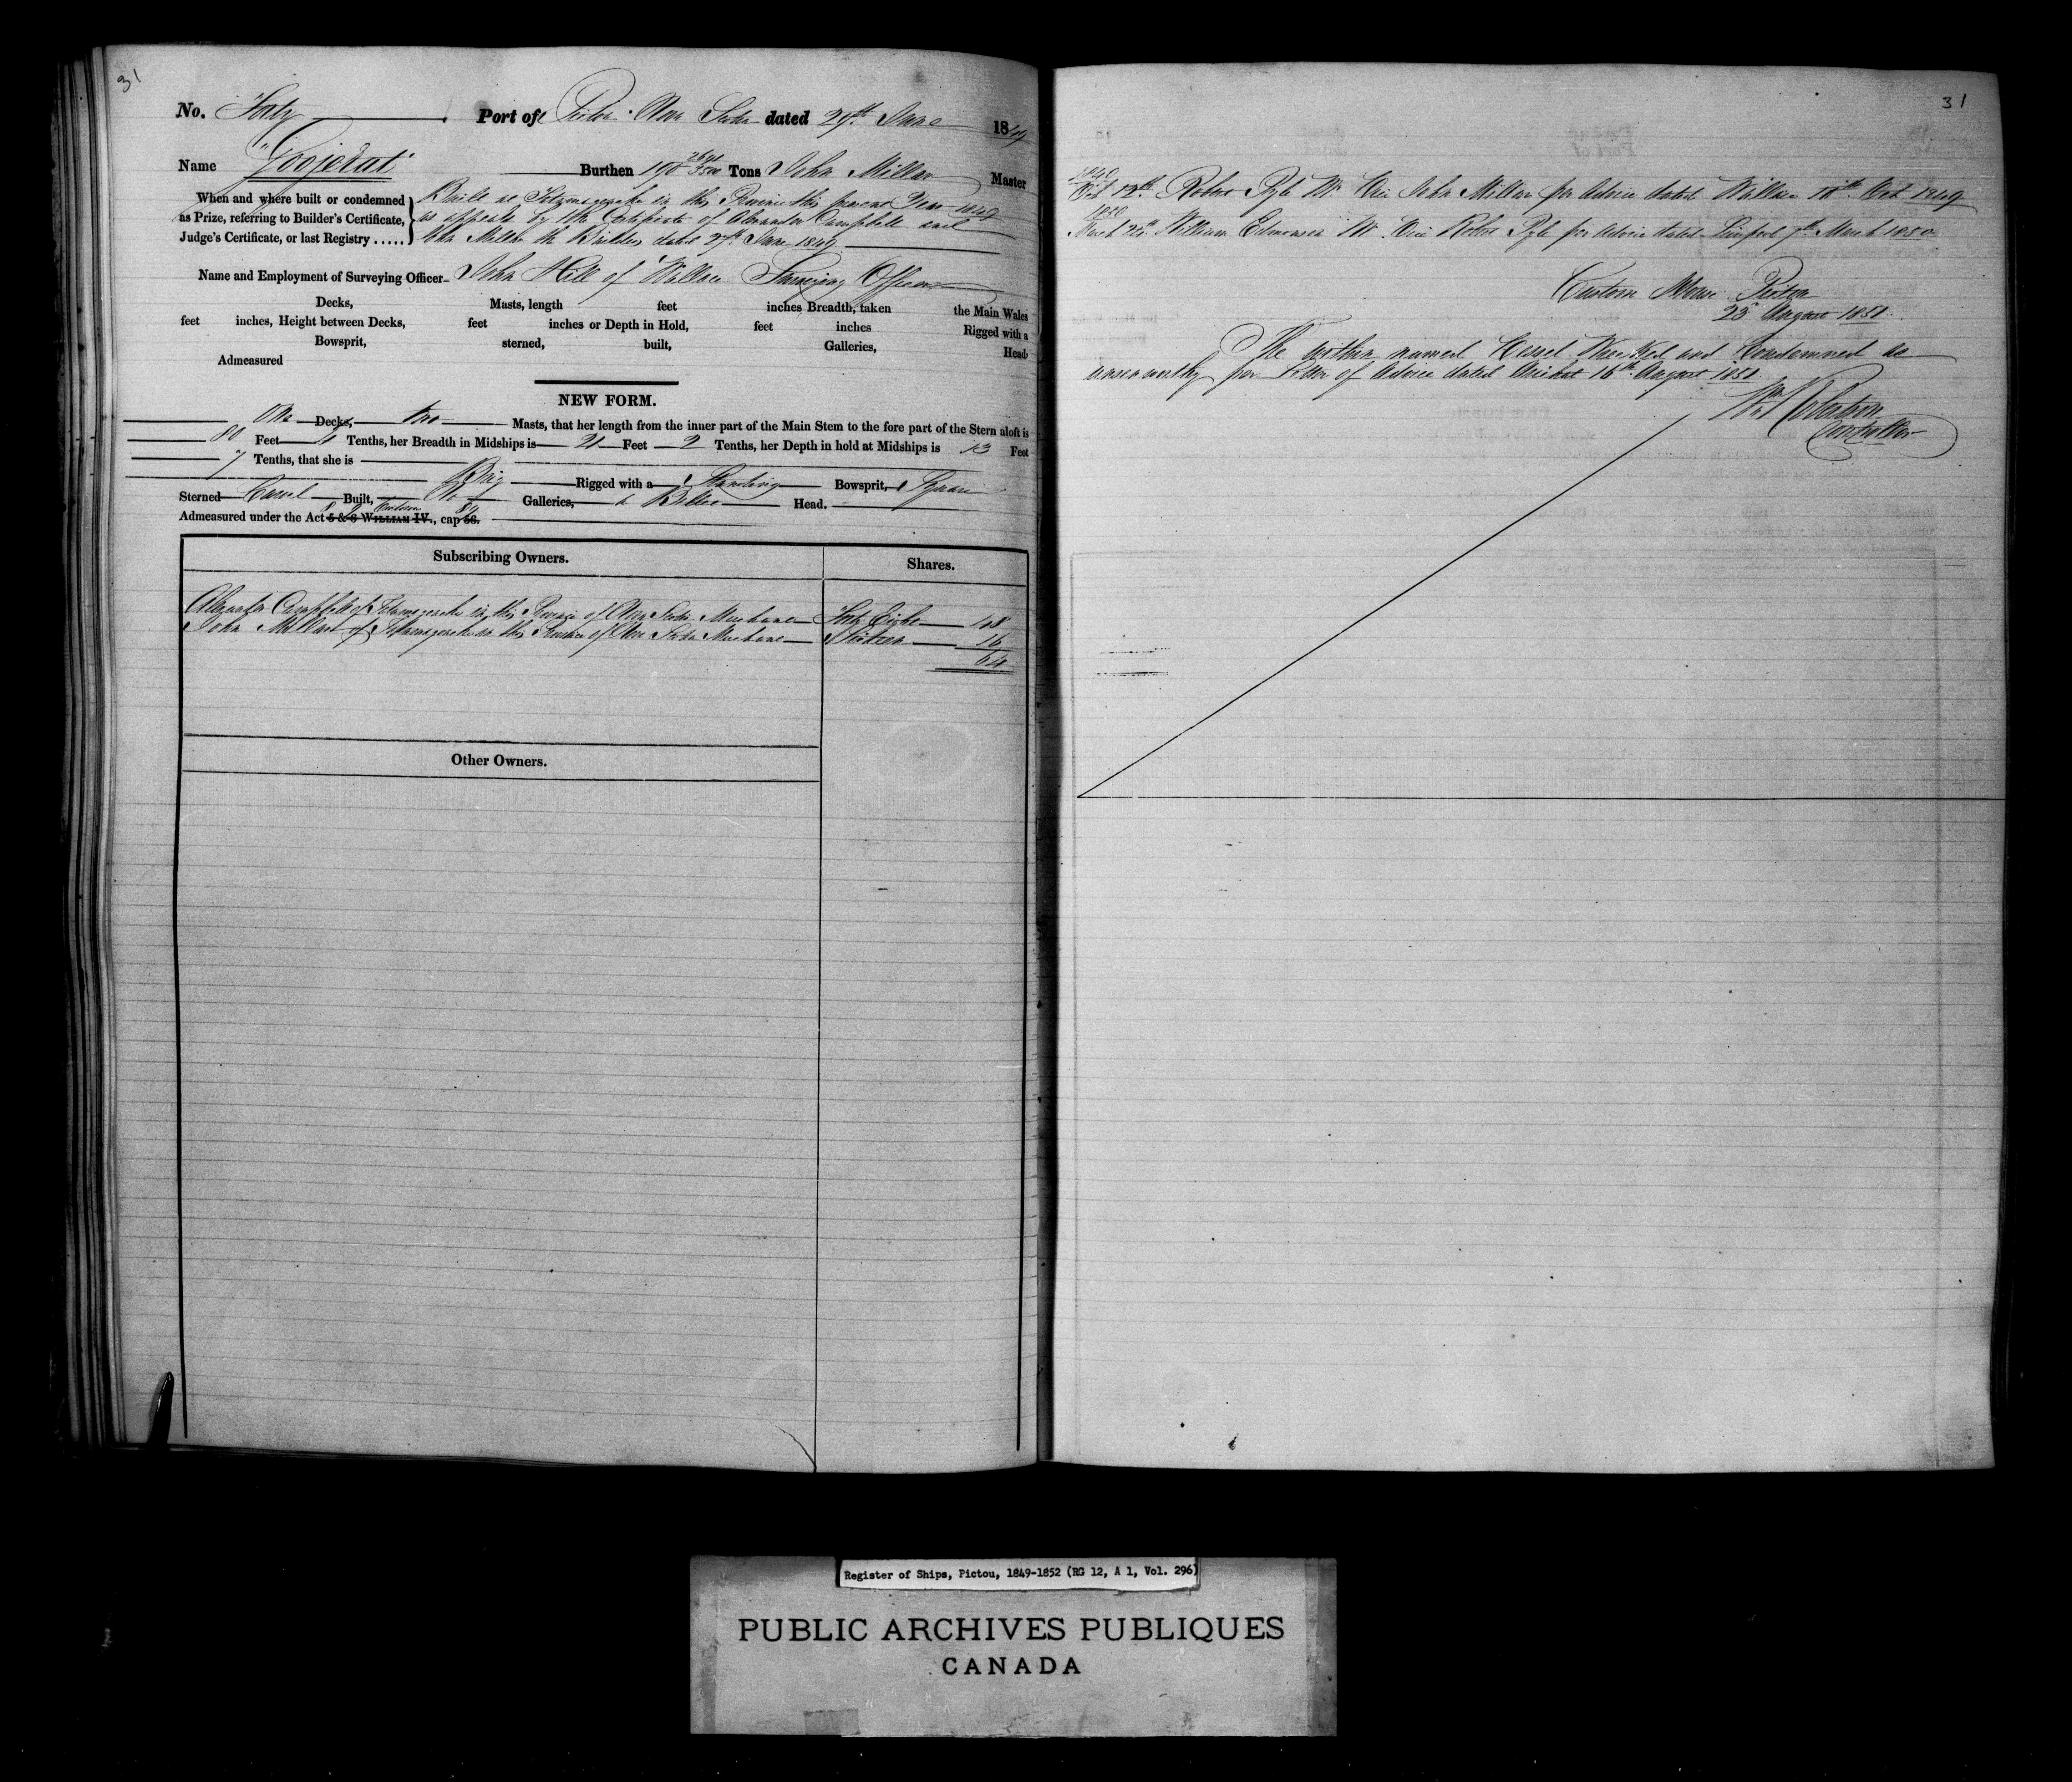 31
No. Forty Port of Pictou Nova Scotia dated 29th June 1849
Name "Goojerat" Burthen 190 Tons John Millar Master
When and where built or condemned
as Prize, referring to Builder's Certificate,
Judge's Certificate, or last Registry .....
Built at Tatamagouche in this Province this present Year 1849
as appears by the Certificate of Alexander Campbell and
John Millar the Builders dated 27th June 1849
Name and Employment of Surveying Officer John Hill of Wallace Surveying Officer
Decks, Masts, length feet inches Breadth, taken the Main Wales
feet inches, Height between Decks, feet inches or Depth in Hold, feet inches Rigged with a
Bowsprit, sterned, built, Galleries, Head
Admeasured
NEW FORM.
One Decks, two Masts, that her length from the inner part of the Main Stem to the fore part of the Stern aloft is
80 Feet Tenths, her Breadth in Midships is 21 Feet 2 Tenths, her Depth in hold at Midships is 13 Feet
7 Tenths, that she is
Brig Rigged with a Standing Bowsprit, Square
Sterned Carvel Built, No Galleries, a Billet Head.
Admeasured under the Act 5 & 6 WILLIAM IV., cap 56.
Subscribing Owners. Shares.
Alexander Campbell of Tatamagouche in this Province of Nova Scotia Merchant Forty Eight 48
John Millar of Tatamagouche in this Province of Nova Scotia Merchant Sixteen 16
64
Other Owners.
31
1849
Oct 12th Robert Pyle Mr. Vice John Millar per Advice dated Wallace Oct 1849
1850
March William Edmonson Mr. Vice Robert Pyle per Advice dated Liverpool 7th March 1850
Custom House Pictou
23d August 1851
The within named Vessel Wrecked and Condemned as
unseaworthy per Letter of Advice dated Arichat 16th August 1851
Wm Robertson
Controller
Register of Ships, Pictou, 1849-1852 (RG 12, A 1, Vol. 296)
PUBLIC ARCHIVES PUBLIQUES
CANADA